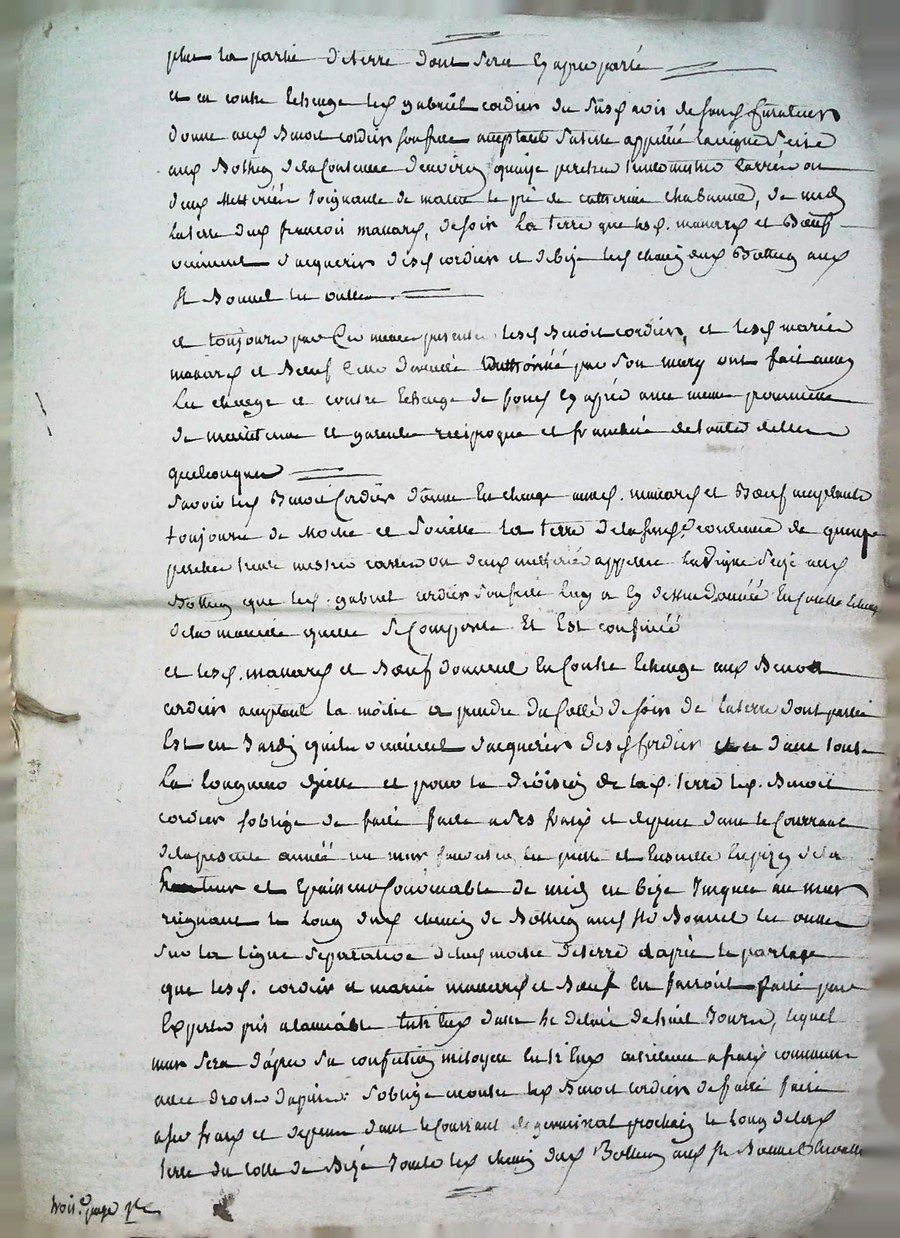 plus la partie de terre dont sera cy apres parlé
et en contre échange led. gabriel cordier du susd. avis de
donne aud. Benoit cordier son frere acceptant sa terre appellée la vigne seize
aud. Bothey de la Contenue d'environ quinze perches metres carrés ou
deux Metérées joignante de matin le pré de catherine chabanne, de midy
la terre dud. francois manary, de soir la terre que lesd. manary et Bœuf
viennent d'acquerir desd. cordier et de bize led. chemin dud. Bothey aud.
st Bonnet les oulles.
et toujours par ces memes presentes lesd. Benoit cordier, et lesd. mariés
manary et Bœuf cette derniere authorisée par son mary ont fait aussy
les change et contre échange de fonds cy après avec meme promesse
de maintenue et garantie reciproque et franchise de toutes dettes
quelconques
Savoir led. Benoit Cordier donne en change auxd. manary et Bœuf acceptants
toujours de moitié et Société la terre de la susd. contenue de quinze
perches metres carrés ou deux metérées appellée la vigne seize aud.
Bothey que led. gabriel cordier son frere luy a cy dessus donnée En Contre échange
de la maniere quelle se Comporte Et Est confinée
et lesd. manary et Bœuf donnent En Contre échange aud. Benoit
cordier acceptant la moitié a prendre du Côté de soir de la terre dont partie
Est en Jardin quils viennent d'acquerir desd. Cordier et ce dans toute
la longueur d'icelle et pour la division de lad. terre led. Benoit
cordier s'oblige de faire faire a ses frais et depens dans le Courrant
de la presente année un mur en pierre et Ensuitte en pizey de la
hauteur et Epaisseur Convenable de midy en bize Jusques au mur
regnant le long dud. chemin de Bothey aud. st Bonnet les oulles
sur la ligne separative de lad. moitié de terre d'après le partage
que lesd. cordier et mariés manary et Bœuf En feront faire par
Experts pris a lamiable Entr'Eux dans le delai de huit Jours, lequel
mur sera d'après sa confection mitoyen Entr'Eux entretenu a frais communs
avec droit d'apuis: s'oblige encore led. Benoit cordier de faire faire
a ses frais et depens dans le Courrant de germinal prochain le long de lad.
terre du côté de Bize Joute led. chemin dud. Bothey aud. st Bonnet les oulles
trois.e page